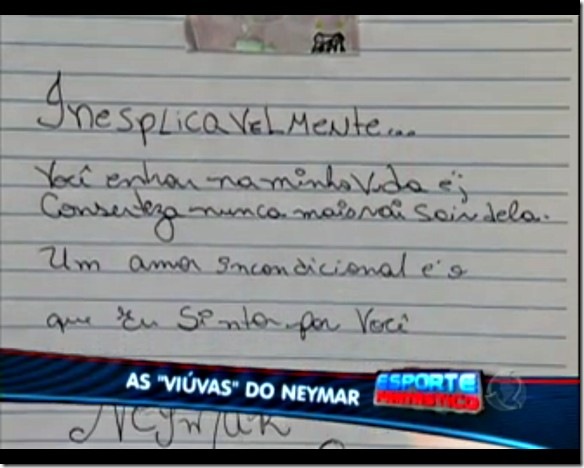 Inesplicavelmente...
Você entrou na minha vida e,
Conserteza nunca mais vai sair dela.
Um amor incondicional é o
que Eu Sinto por Você
AS "VIÚVAS" DO NEYMAR
ESPORTE
FANTÁSTICO
NEYMAR